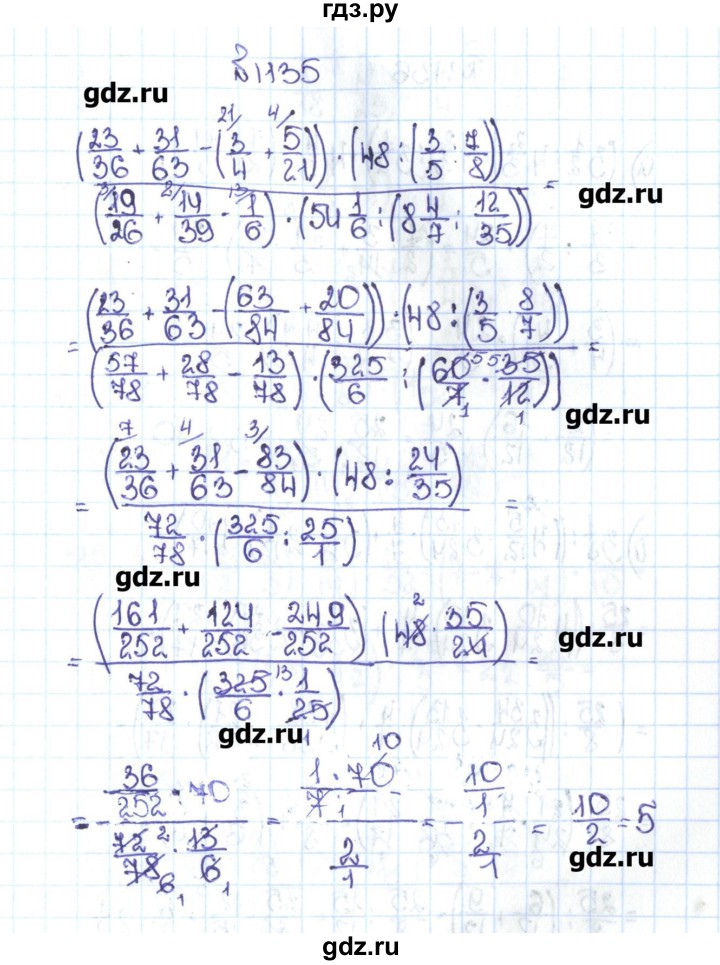 гдз.ру
№1135
gdz.ru
(23/36 + 31/63 - (3/4 + 5/21)) · (48 : (3/5 · 7/8))
21/ 4/
gdz.ru
(19/26 + 14/39 - 1/6) · (54 1/6 : (8 4/7 : 12/35)) =
3/ 2/ 13/
= (23/36 + 31/63 - (63/84 + 20/84)) · (48 : (3/5 · 8/7))
(57/78 + 28/78 - 13/78) · (325/6 : (60/7 · 35/12)) =
5 5 1 1
gdz.ru
7 4/ 3/
= (23/36 + 31/63 - 83/84) · (48 : 24/35)
72/78 · (325/6 : 25/1) =
gdz.ru
= (161/252 + 124/252 - 249/252) (48 · 35/24)
2
gdz.ru
72/78 · (325/6 · 1/25) =
13 1
gdz.ru
= 36/252 · 70 = 1/7 · 70 = 10/1 = 10/2 = 5
10 1
72/78 · 13/6 2/1 2/1
2 6 1 1
gdz.ru
gdz.ru